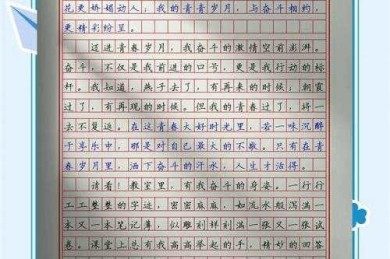 花更娇媚动人；我的青青岁月，与奋斗相约，
更精彩纷呈。
迈进青春岁月，我奋斗的激情空前澎湃。
奋斗，不仅是我前进的口号，更是我行动的标
杆。我知道，燕子去了，有再来的时候；朝霞
过了，有再现的时候。但我的青春过了，将一
去不复返。在这青春大好时光里，若一味沉醉
于享乐中，那是对自己最大的不敬。只有在青
春岁月里，洒下奋斗的汗水，人生才活得。
请看！教室里，有我奋斗的身姿。一行行
工工整整的字迹，密密麻麻，如流水般泻满一
本又一本笔记簿，似雕刻样刻满一张又一张试
卷。课堂上总有我高高举起的手，精妙的回答